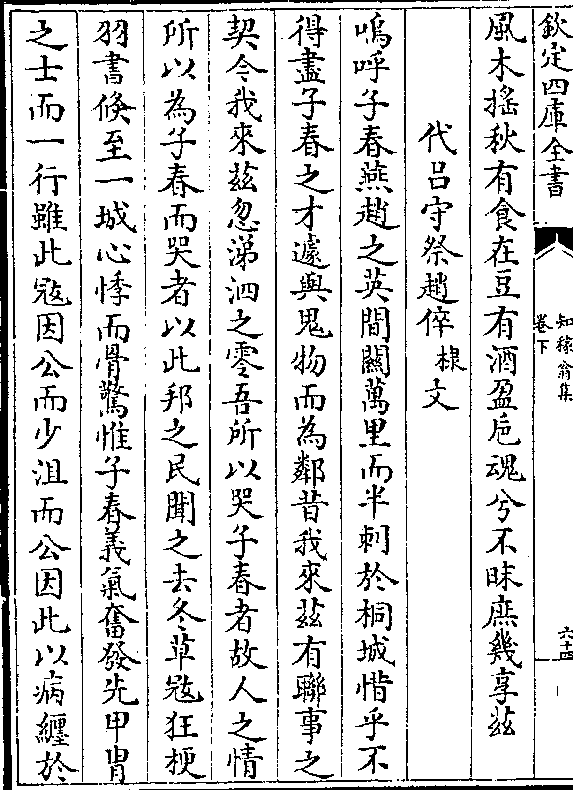 欽定四庫全書
知稼翁集
卷下
六十四
風木摇秋有食在豆有酒盈巵魂兮不昧庶幾享兹
代吕守祭趙倅棣文
嗚呼子春燕趙之英間關萬里而半刺於桐城惜乎不
得盡子春之才遽與鬼物而為鄰昔我來兹有聯事之
契今我來兹忽涕泗之零吾所以哭子春者故人之情
所以為子春而哭者以此邦之民聞之去冬草㓂狂梗
羽書倐至一城心悸而骨驚惟子春義氣奮發先甲胄
之士而一行雖此㓂因公而少沮而公因此以病纒於